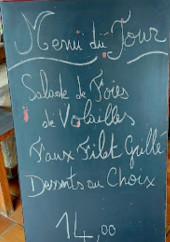 Menu du Jour
Salade de Foies
de Volailles
Faux Filet Grillé
Desserts au Choix
14,00